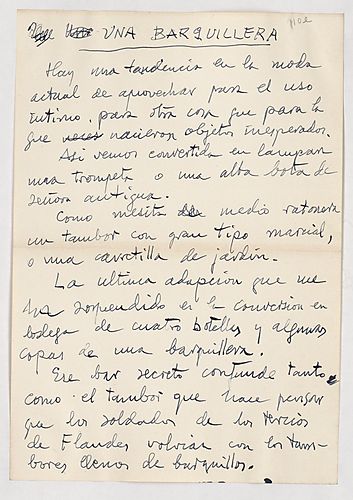 UNA BARQUILLERA
Hay una tendencia en la moda
actual de aprovechar para el uso
intimo, para otra cosa que para la
que nacieron objetos inesperados.
Asi vemos convertida en lampara
una trompeta o una alta bota de
señora antigua.
Como mesita medio ratonera
un tambor con gran tipo marcial,
o una carretilla de jardin.
La ultima adapcion que me
ha sorprendido es la conversion en
bodega de cuatro botellas y algunas
copas de una barquillera.
Ese bar secreto confunde tanto
como el tambor que hace pensar
que los soldados de los tercios
de Flandes volvian con los tam-
bores llenos de barquillos.